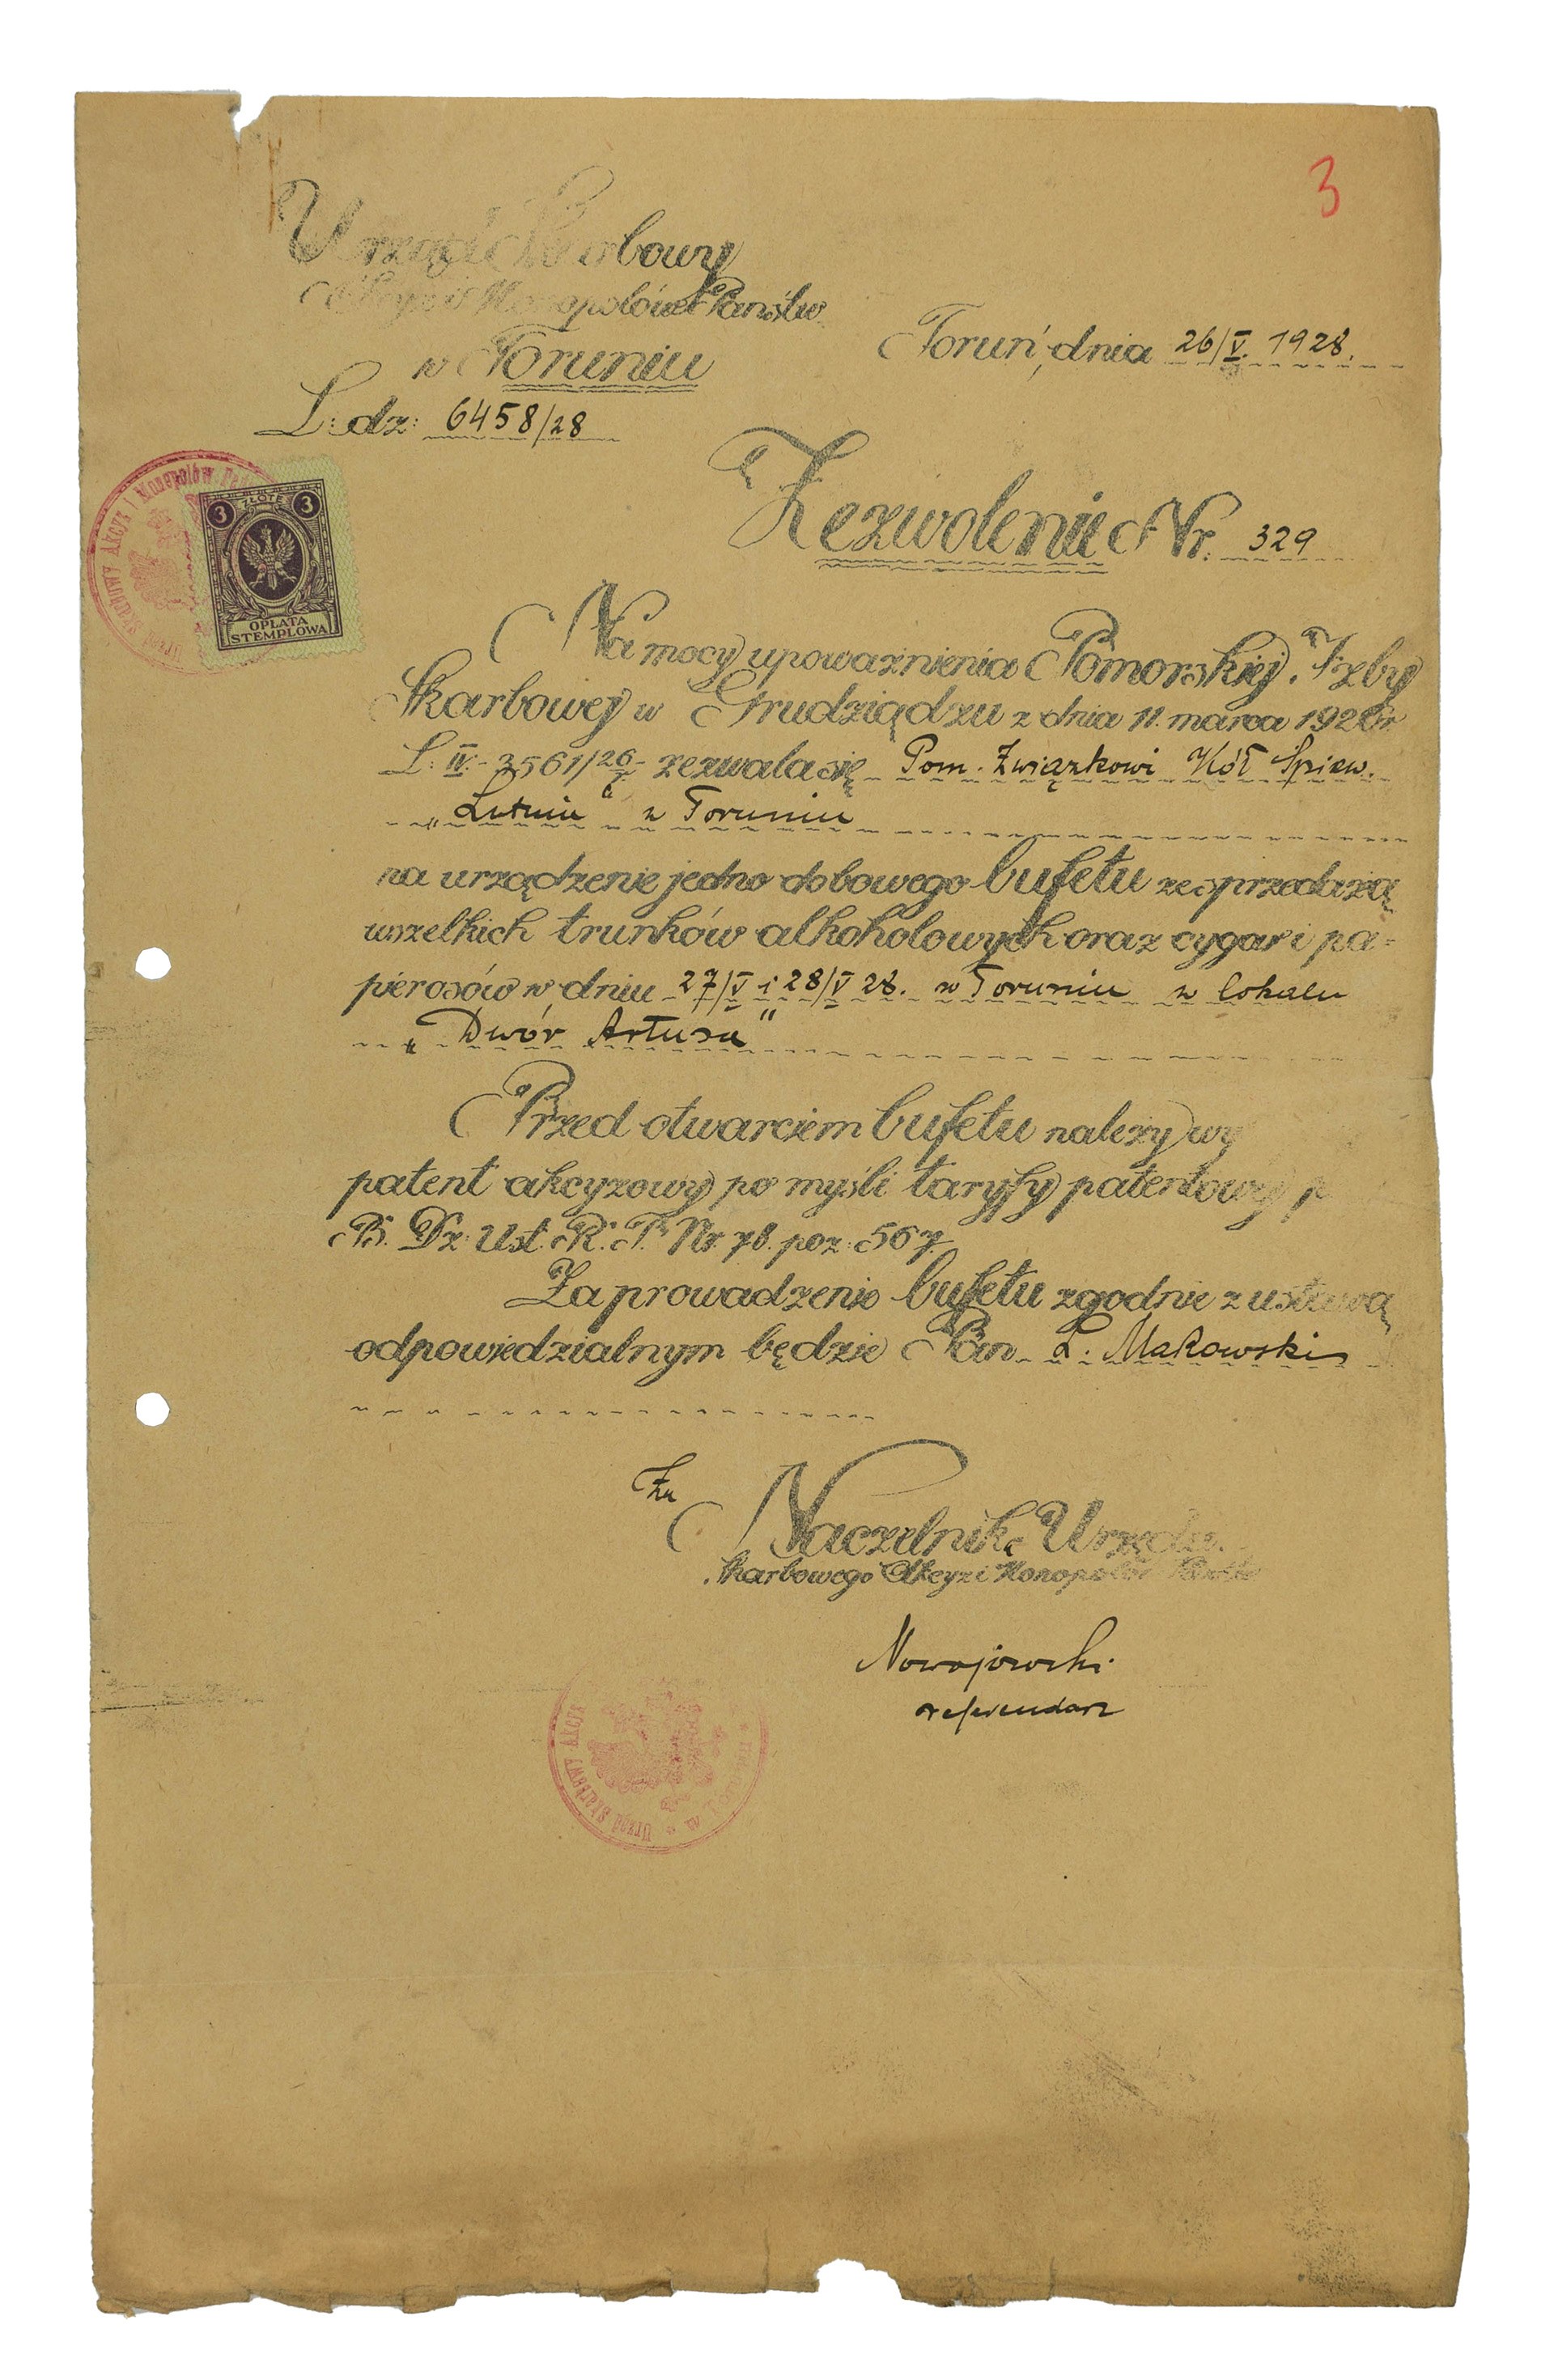 3
Urząd Skarbowy
Akcyz i Monopolów Państw.
w Toruniu
Toruń, dnia 26/V. 1928.
L: dz: 6458/28
Urząd Skarbowy Akcyz i Monopolów
3 ZŁOTE 3
OPŁATA
STEMPLOWA
Zezwolenie Nr. 329
Na mocy upoważnienia Pomorskiej Izby
Skarbowej w Grudziądzu z dnia 11. marca 1926r.
L: IV.- 3561/26 - zezwala się Pom. Związkowi Kół Śpiew.
„Lutnia" w Toruniu
na urządzenie jedno dobowego bufetu ze sprzedażą
wszelkich trunków alkoholowych oraz cygar i pa=
pierosów w dniu 27/V i 28/V 28. w Toruniu w lokalu
„Dwór Artusa"
Przed otwarciem bufetu należy wy
patent akcyzowy po myśli taryfy patentowej
B. Dz. Ust. R. P. Nr. 78. poz: 567.
Za prowadzenie bufetu zgodnie z ustawą
odpowiedzialnym będzie Pan L. Makowski
Za
Naczelnik Urzędu
Skarbowego Akcyz i Monopolów Państw
Nowojowski
referendarz
Urząd Skarbowy Akcyz * w Toruniu *